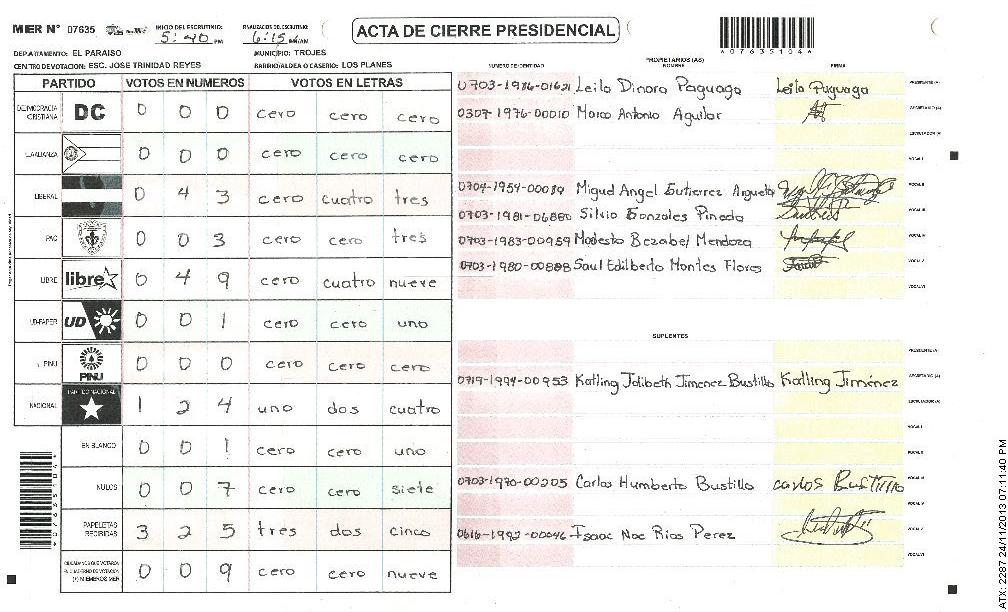 MER Nº 07635 INICIO DEL ESCRUTINIO: 5:40 PM FINALIZACION DEL ESCRUTINIO: 6:15 PM/AM
ACTA DE CIERRE PRESIDENCIAL
A07635104A
DEPARTAMENTO: EL PARAISO MUNICIPIO: TROJES
CENTRO DE VOTACION: ESC. JOSE TRINIDAD REYES BARRIO/ALDEA O CASERIO: LOS PLANES
PARTIDO VOTOS EN NUMEROS VOTOS EN LETRAS
DEMOCRACIA CRISTIANA DC 0 0 0 cero cero cero
LA ALIANZA 0 0 0 cero cero cero
LIBERAL 0 4 3 cero cuatro tres
PAC 0 0 3 cero cero tres
LIBRE libre 0 4 9 cero cuatro nueve
UD-FAPER UD 0 0 1 cero cero uno
PINU PINU 0 0 0 cero cero cero
NACIONAL PARTIDO NACIONAL 1 2 4 uno dos cuatro
EN BLANCO 0 0 1 cero cero uno
NULOS 0 0 7 cero cero siete
PAPELETAS RECIBIDAS 3 2 5 tres dos cinco
CIUDADANOS QUE VOTARON EN CUADERNO DE VOTACION (+) MIEMBROS MER 0 0 9 cero cero nueve
NUMERO DE IDENTIDAD PROPIETARIOS (AS) NOMBRE FIRMA
Leila Dinora Paguaga Leila Paguaga PRESIDENTE (A)
0307-1976-00010 Marco Antonio Aguilar SECRETARIO (A)
ESCRUTADOR (A)
VOCAL I
0704-1954-00089 Miguel Angel Gutierrez Argueta VOCAL II
0703-1981-06880 Silvio Gonzales Pineda VOCAL III
0703-1983-00959 Modesto Bezabel Mendoza VOCAL IV
0703-1980-00898 Saul Edilberto Montes Flores VOCAL V
VOCAL VI
SUPLENTES
PRESIDENTE (A)
0719-1994-00953 Katling Jolibeth Jimenez Bustillo Katling Jiménez SECRETARIO (A)
ESCRUTADOR (A)
VOCAL I
VOCAL II
0703-1970-00205 Carlos Humberto Bustillo carlos Bustillo VOCAL III
VOCAL IV
0616-1992-00046 Isaac Noe Rios Perez VOCAL V
VOCAL VI
ATX: 2287 24/11/2013 07:11:40 PM